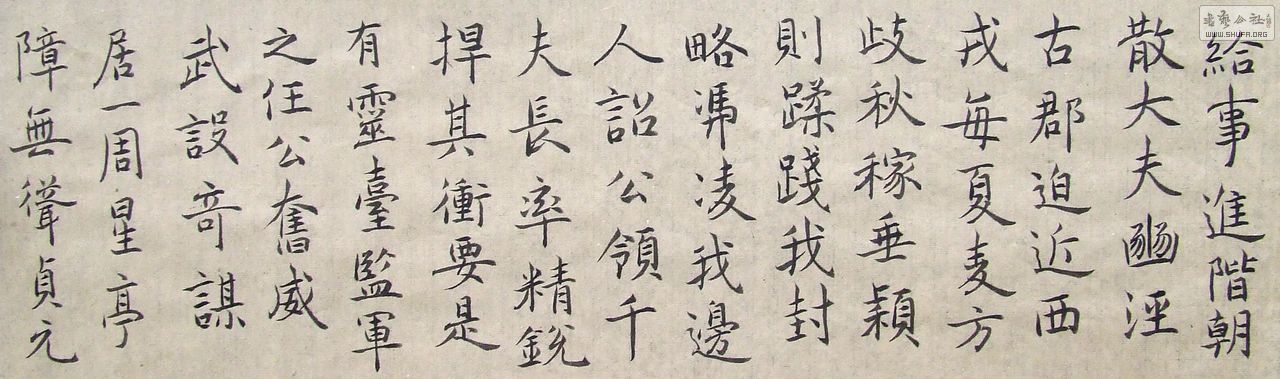 給事進階朝
散大夫豳涇
古郡迫近西
戎每夏麦方
歧秋稼垂穎
則蹂踐我封
略馮凌我邊
人詔公領千
夫長率精銳
捍其衝要是
有靈臺監軍
之任公奮威
武設奇謀
居一周星亭
障無聳貞元
書藝公社
WWW.SHUFA.ORG